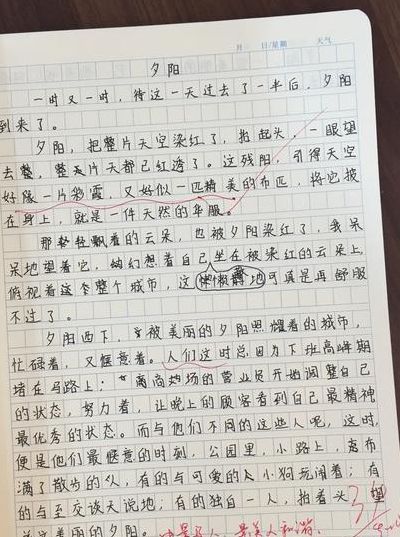 月 日/星期 天气
夕阳
一时又一时，待这一天过去了一半后，夕阳
到来了。
夕阳，把整片天空染红了，抬起头，一眼望
去整，整片天都已红透了。这残阳，引得天空
好像一片彩霞，又好似一匹精美的布匹，将它披
在身上，就是一件天然的华服。
那轻飘着的云朵，也被夕阳染红了，我呆
呆地望着它，幻想着自己坐在被染红的云朵上，
俯视着这整个城市，这 地可真是再舒服
不过了。
夕阳西下，被美丽的夕阳照耀着的城市，
忙碌着，又惬意着。人们这时总因为下班高峰期
堵在马路上；商场的营业员开始调整自己
的状态，努力着，让晚上的顾客看到自己最精神
最优秀的状态。而与他们不同的这些人呢，这时，
便是他们最惬意的时刻，公园里，小路上，布
满了散步的人，有的与可爱的小狗玩闹着；有
的与至交谈天说地；有的独自一人，抬着头望
着这美丽的夕阳。